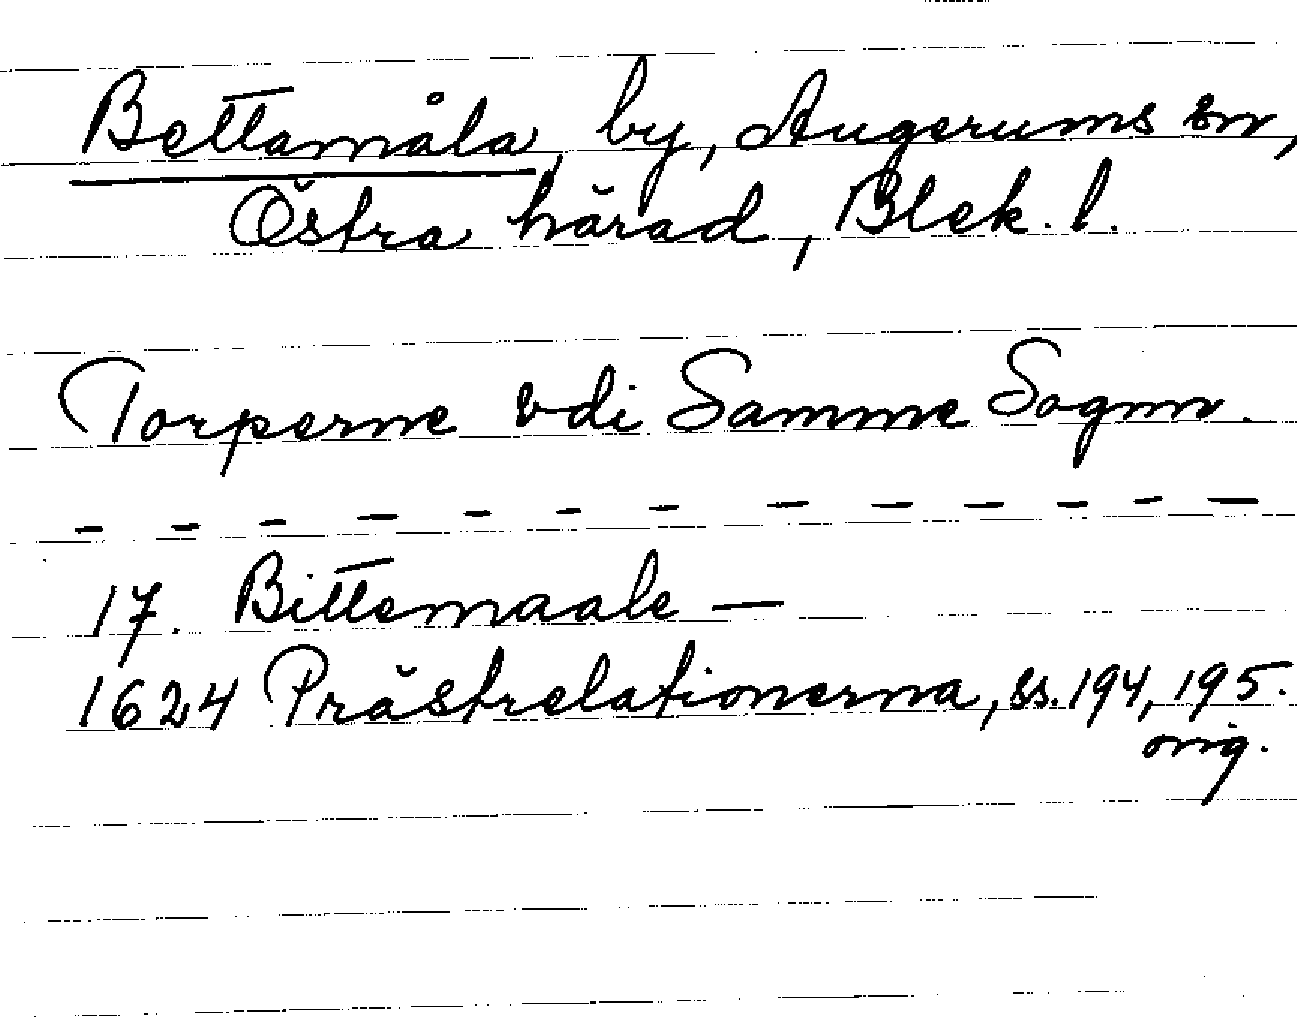 Bettamåla, by, Augerums sn,
Östra härad, Blek. l.
Torperne vdi Samme Sognn.
- - - - - - - - - - - - -
17. Bittemaale —
1624 Prästrelationerna, ss. 194, 195.
orig.